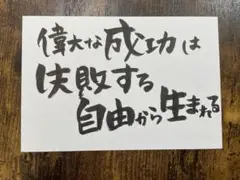 偉大な成功は
失敗する
自由から生まれる